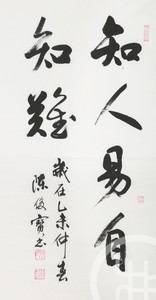 知人易自
知難
歲在乙未仲春
陳俊寶書